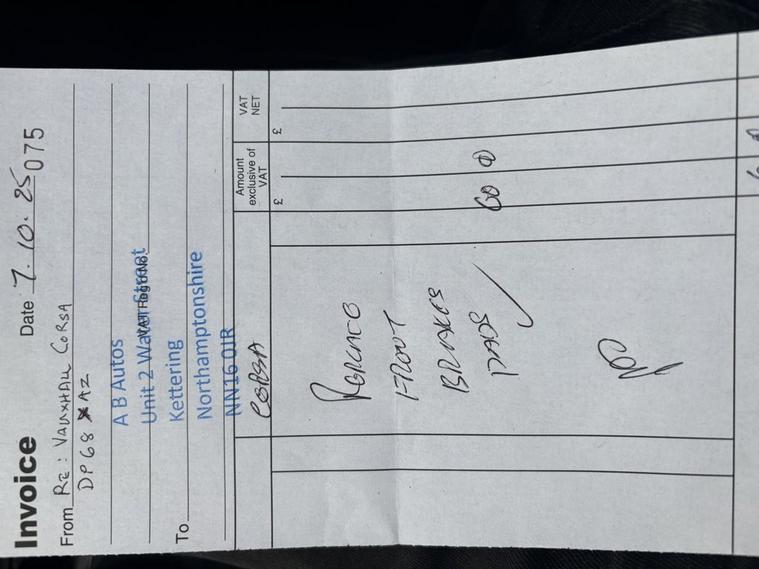 Invoice
Date 7.10.25 075
From RE: VAUXHALL CORSA
DP68 XAZ
A B Autos
Unit 2 Water Street
VAT Reg No
Kettering
To
Northamptonshire
NN16 0JR
Amount exclusive of VAT
VAT NET
CORSA
£
£
FRONT
BRAKES
PADS 60 0